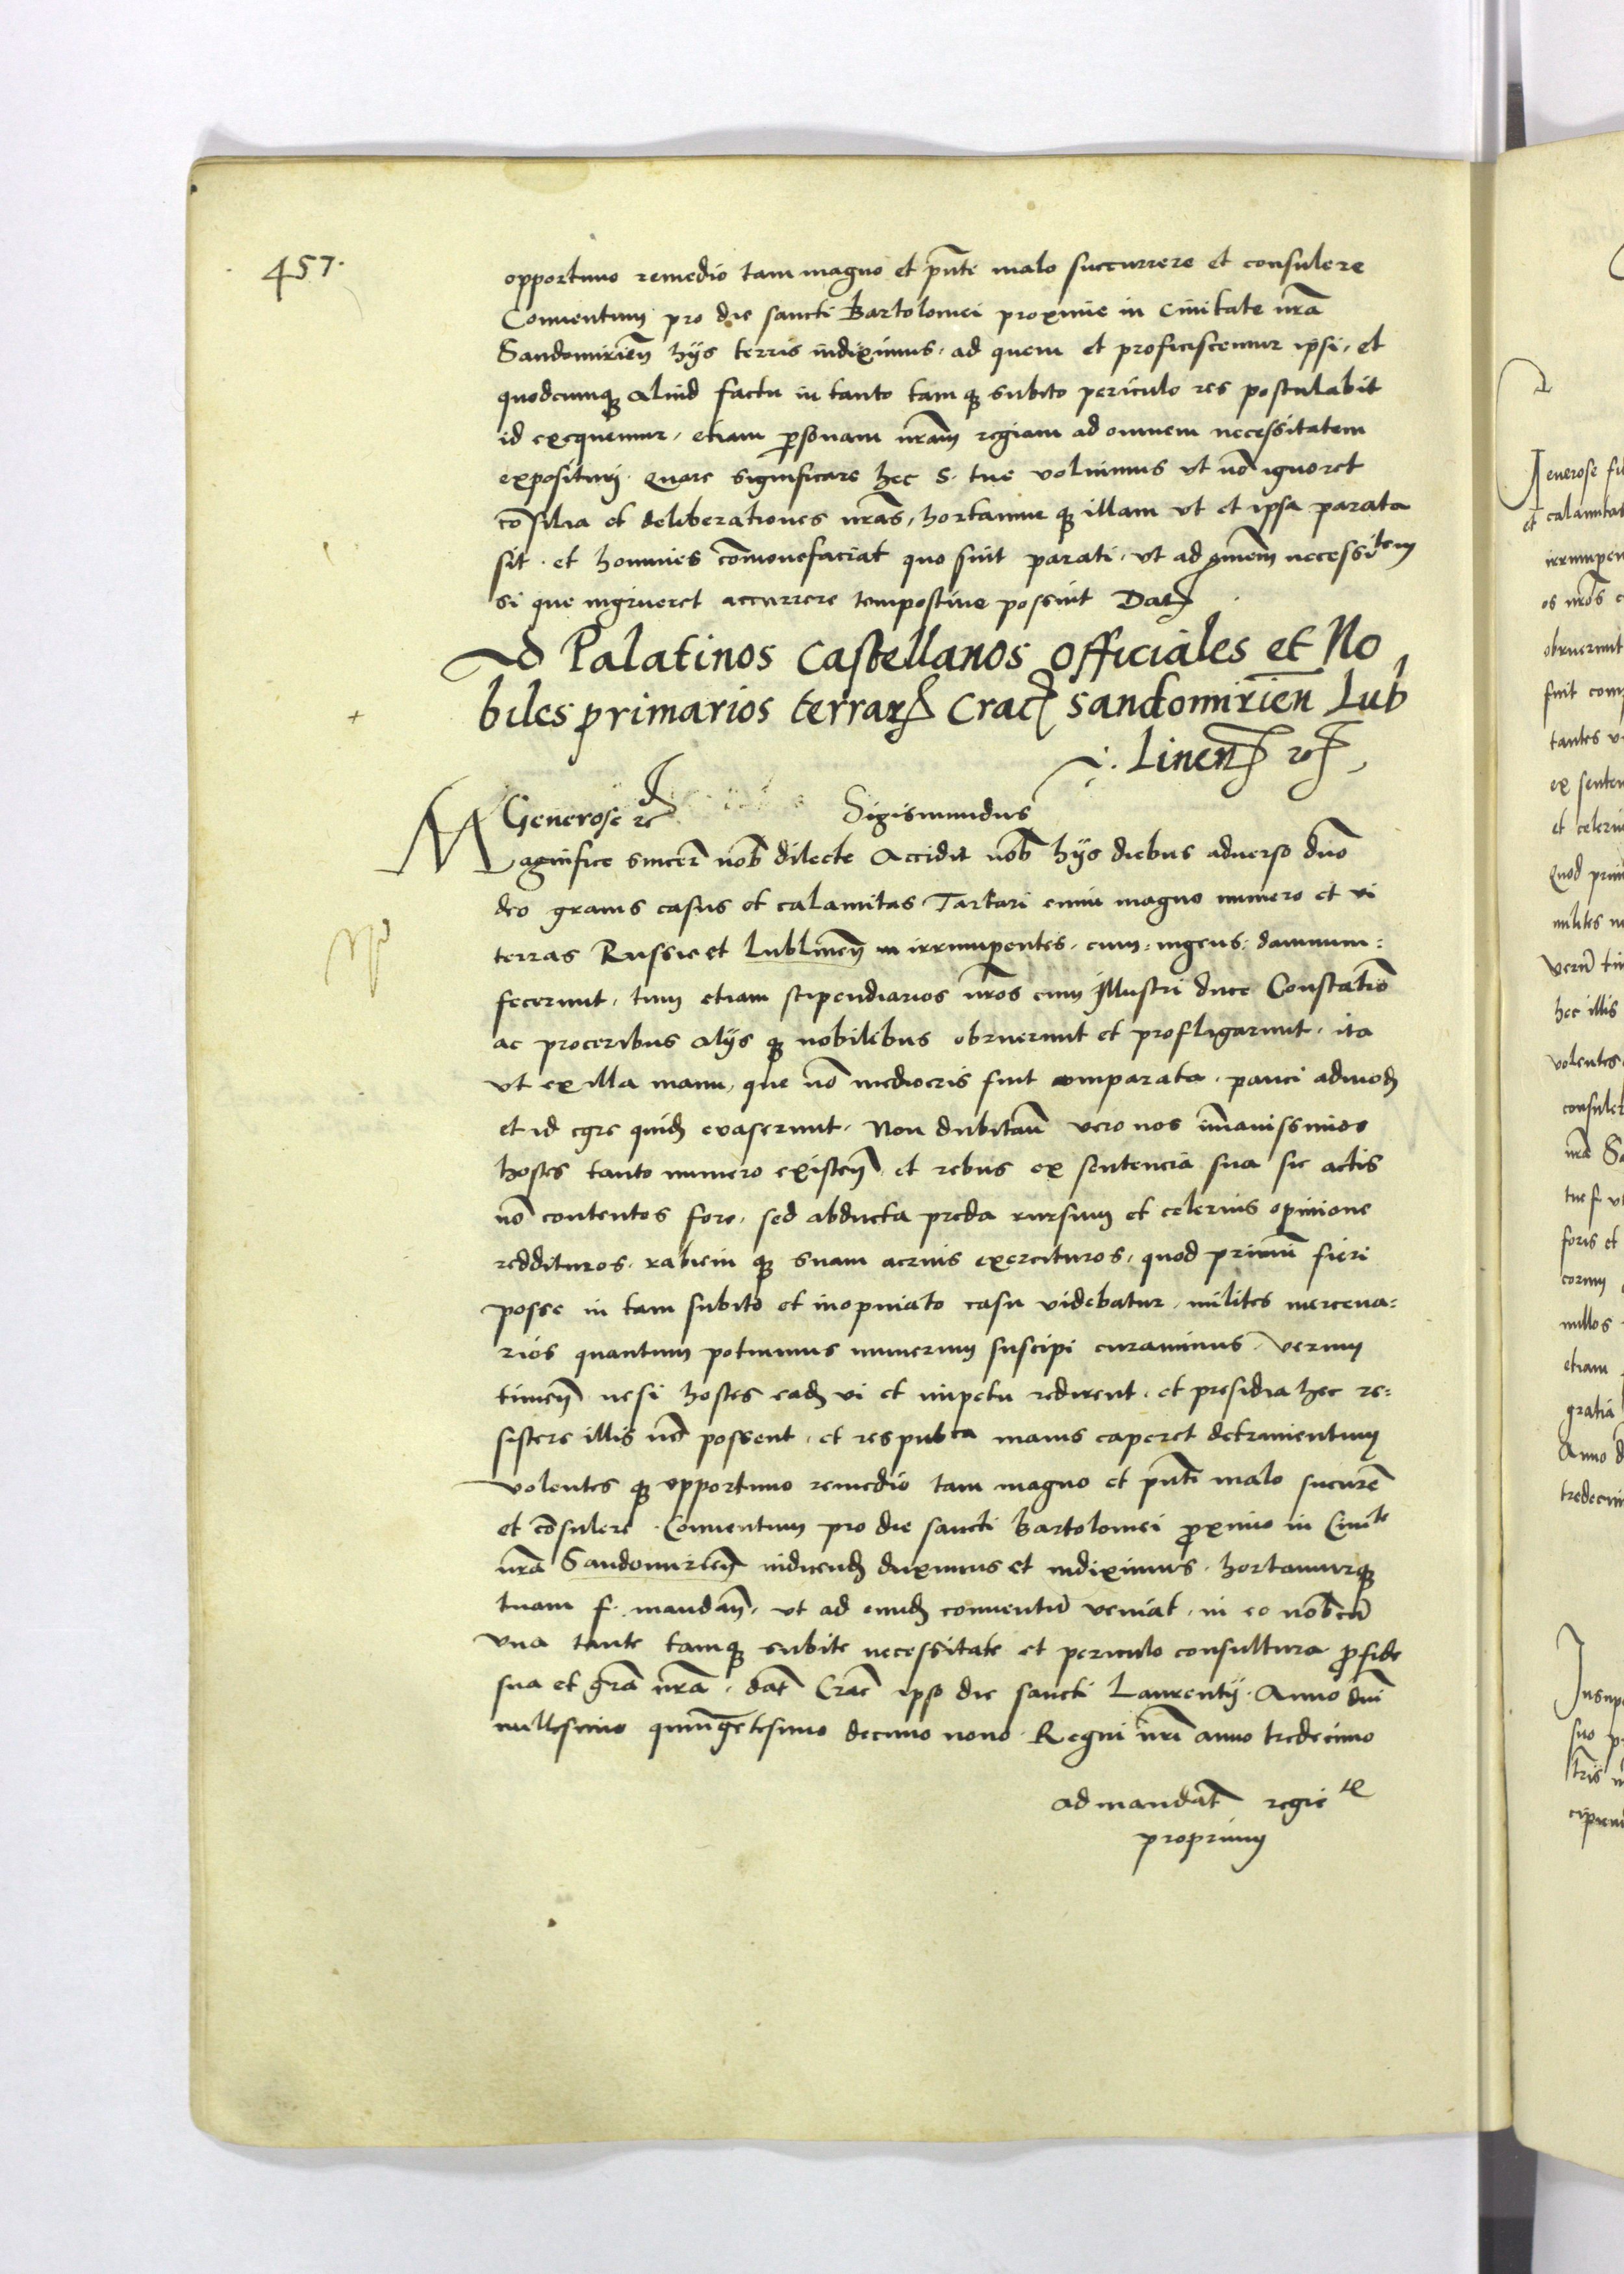 457.
opportuno remedio tam magno et pñti malo succurrere et consulere
Conuentum pro die sancti Bartolomei proxime in Ciuitate nrã
Sandomirieñ hijs terris indiximus. ad quem et proficiscemur ipsi, et
quodcunqꝫ aliud factu in tanto tam qꝫ subito periculo res postulabit
id exequemur, etiam personam nram̃ regiam ad omnem necessitatem
exposituri. Quare significare hec S. tue voluimus vt nõ ignoret
cõsilia et deliberationes nras̃, hortamur qꝫ illam vt et ipsa parata
sit. et homines cõmonefaciat quo sint parati. vt ad omnem̃ necessitem
si que ingrueret accurrere tempestiue possint Datꝫ
Ad Palatinos Castellanos officiales et No
biles primarios terrarꝝ Cracꝫ sandomirieñ Lub
linenꝫ rcꝫ
Generose rc Sigismundus
Magnifice sincerẽ nob̃ dilecte Accidit nob̃ hijs diebus aduerso dño
deo grauis casus et calamitas Tartari enim magno numero et vi
terras Russie et Lublineñ irrumpentes. cum ingens damnum
fecerunt, tum etiam stipendiarios nros̃ cum Illustri duce Constãtio
ac proceribus alijs qꝫ nobilibus obruerunt et profligarunt, ita
vt ex illa manu, que nõ mediocris fuit comparata. pauci admodꝫ
et id egre quidꝫ euaserunt. Non dubitam̃ vero nos im̃anissimos
hostes tanto numero existeñ et rebus ex sentencia sua sic actis
nõ contentos fore. sed abducta preda rursum et celerius opinione
reddituros. rabiem qꝫ suam acrius exercituros, quod primũ fieri
posse in tam subito et inopinato casu videbatur, milites mercena=
rios quantum potuimus numerum suscipi curauimus. Verum
timeñ ne si hostes eadꝫ vi et impetu redirent. et presidia hec re=
sistere illis nõ possent. et respubca maius caperet detrimentum
volentes qꝫ opportuno remedio tam magno et pñti malo sucurrẽ
et cõsulere. Conuentum pro die sancti Bartolomei p̱ximo in Ciuite
nrã Sandomirieñ inducendꝫ duximus et indiximus. hortamurqꝫ
tuam f. mandañ. vt ad eundꝫ conuentũ veniat, in eo nob̃cũ
vna tante tamqꝫ subite necessitate et periculo consultura p̱ fide
sua et grã nrã. datꝫ Crac̃ ipso die sancti Laurentij. Anno dñi
millesimo quingẽtesimo decimo nono. Regni nri anno tredecimo
ad mandat̃ regie te
proprium